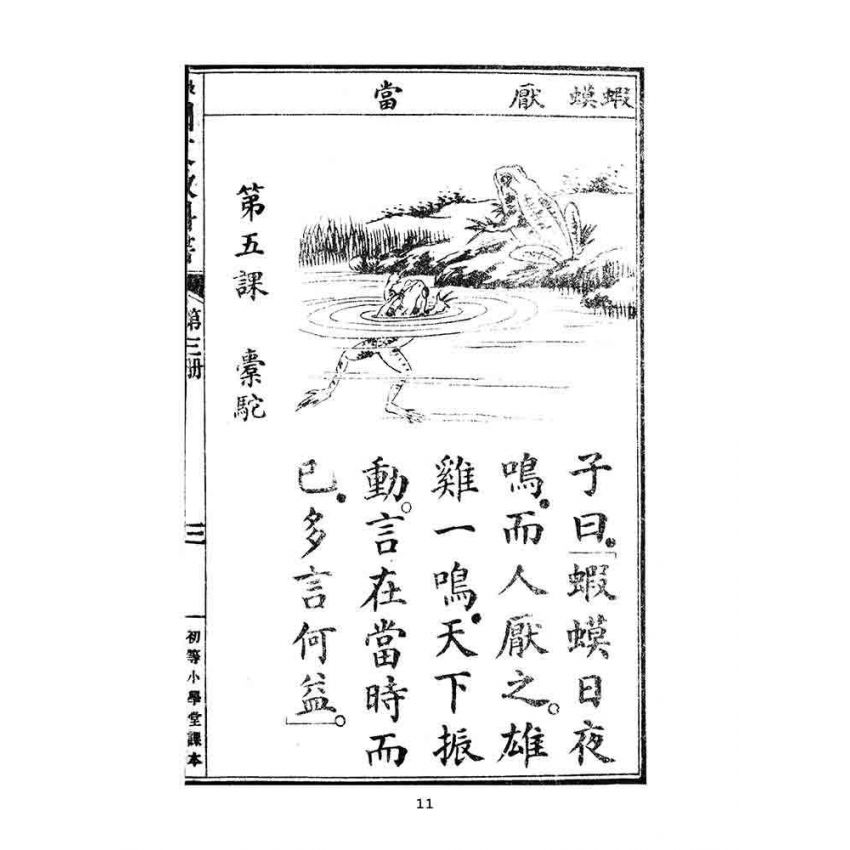 蝦蟆 厭 當
子曰，「蝦蟆日夜
鳴，而人厭之。雄
雞一鳴，天下振
動。言在當時而
已，多言何益」。
第五課 橐駝
第三册
三
初等小學堂課本
11